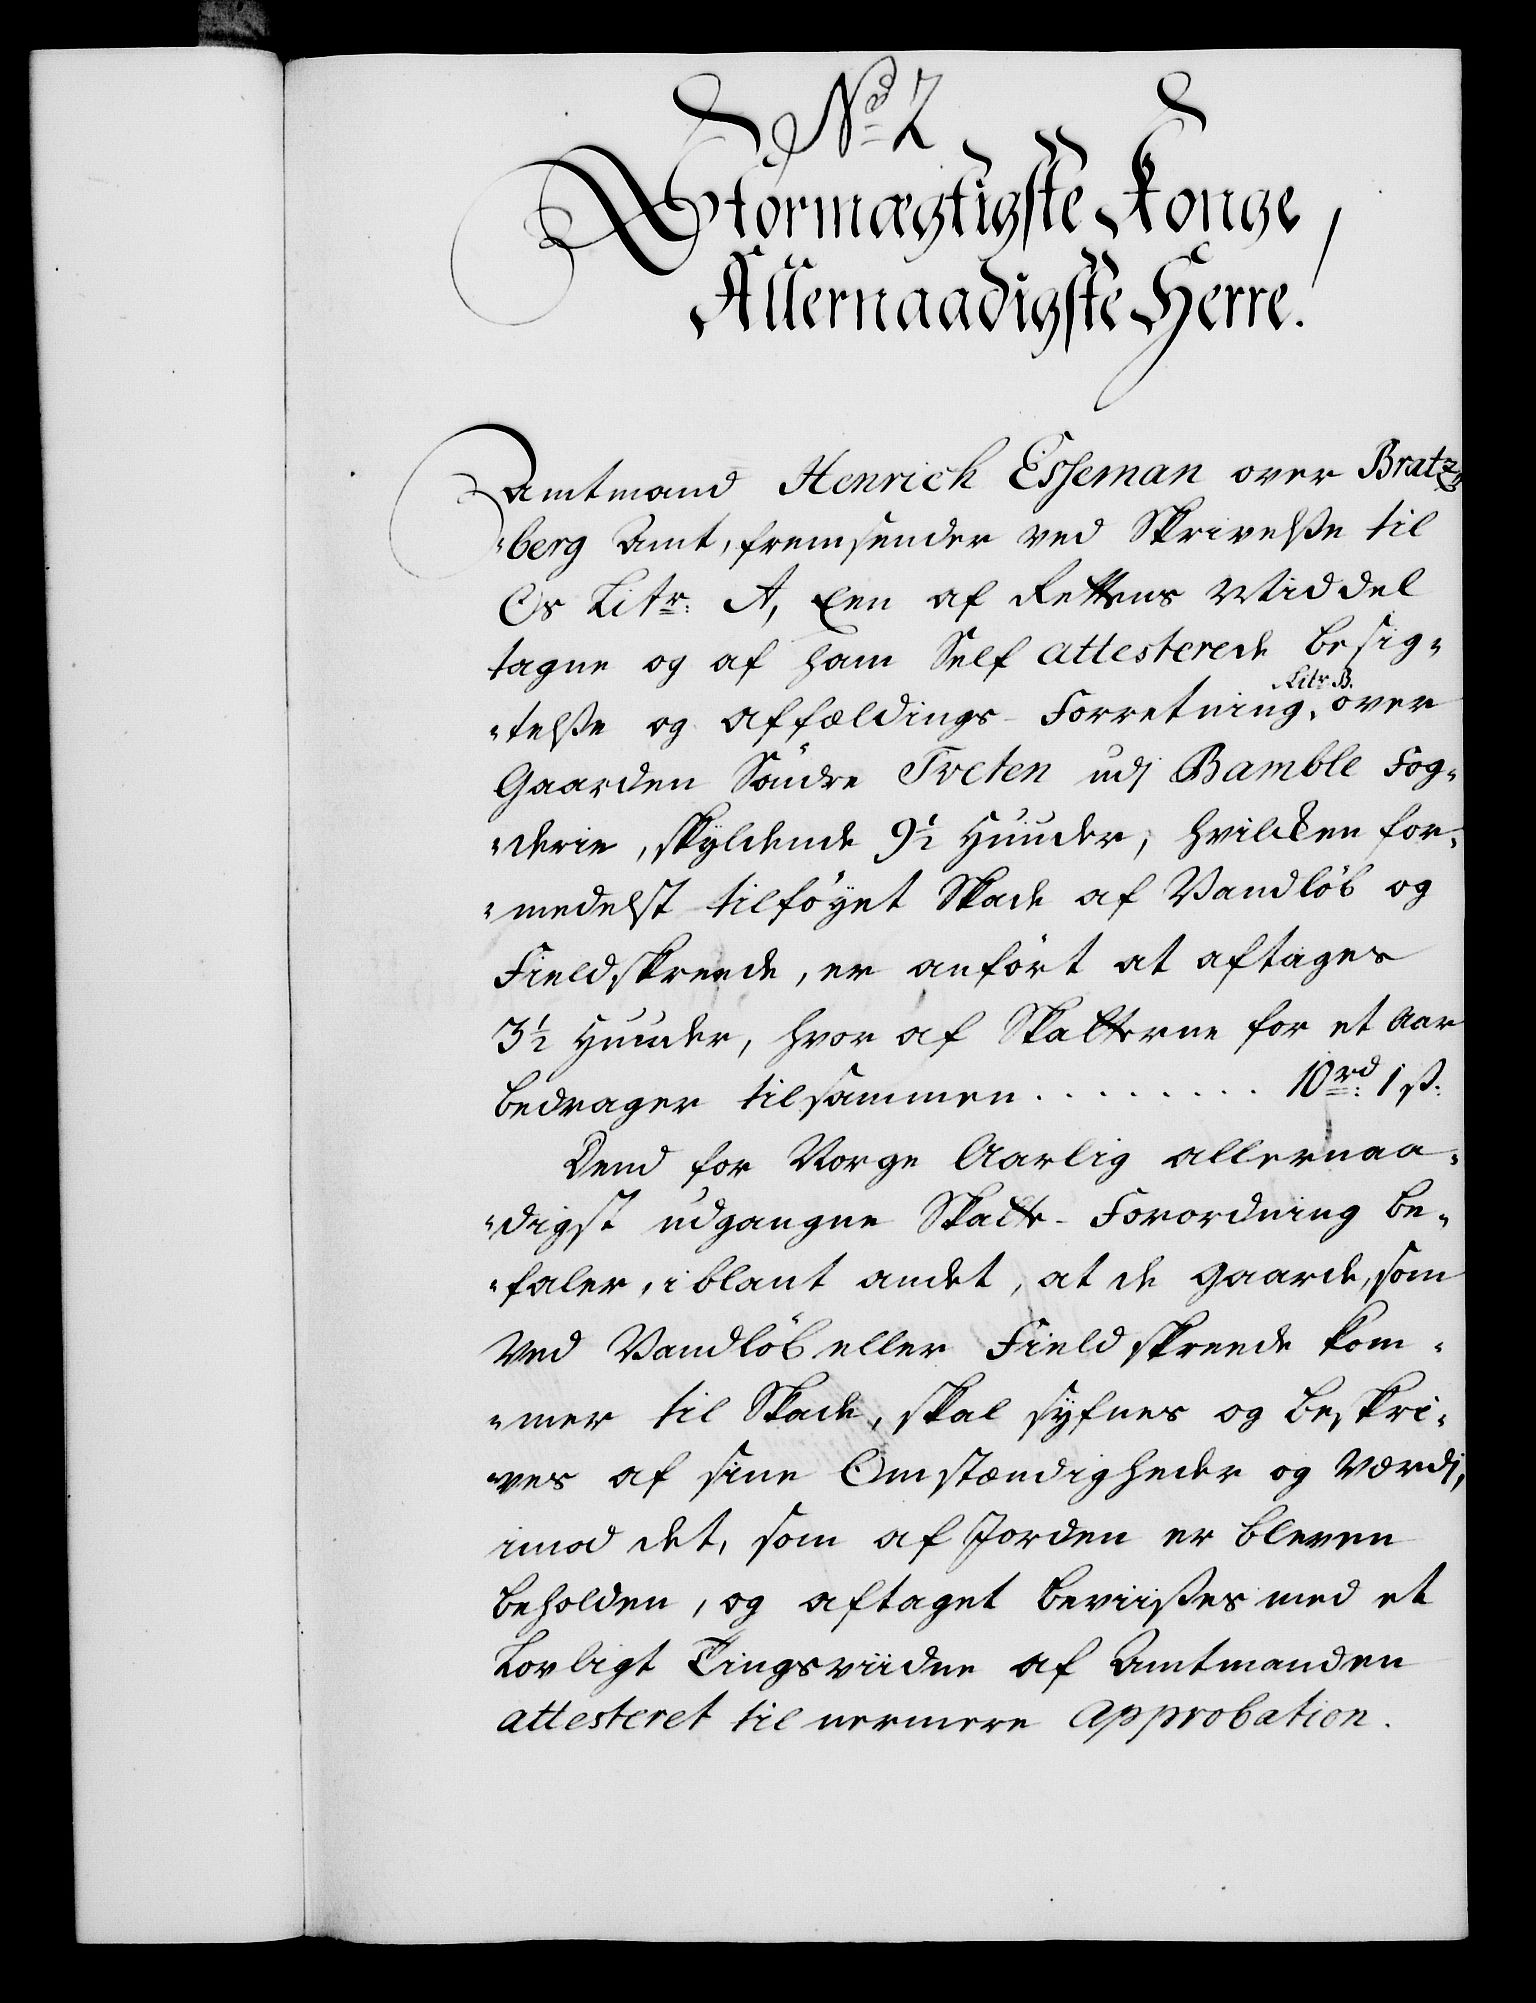 No 2
Stormægtigste Konge
Allernaadigste Herre!
Amtmand Henrich Esseman over Bratz„
„berg Amt, fremsender ved Skrivelße til
Os Litr: A, Een af Rettens Middel
tagne og af ham Self attesterede besig„
Litr B.
„telße og Affældings-Forretning, over
Gaarden Söndre Tveten udj Bamble Fog„
„derie, skyldende 9½ Huuder, hvilken for„
„medelst tilföyet Skade af Vandlöb og
Fieldskreede, er anfört at aftages
3½ Huuder, hvor af Skatterne for et Aar
bedrager tilsammen . . . . . . . . . 10rd: 1 ß:
Dend for Norge Aarlig allernaa„
„digst udgangne Skatte-Forordning be„
„faler, iblant andet, at de Gaarde, som
ved Vandlöb eller Fieldskreede kom„
„mer til Skade, skal syfnes og beskri„
„ves af sine Omstændigheder og Værdj,
imod det, som af Jorden er bleven
beholden, og aftaget beviißes med et
Lovligt Tingsviidne af Amtmanden
attesteret til nermere Approbation.